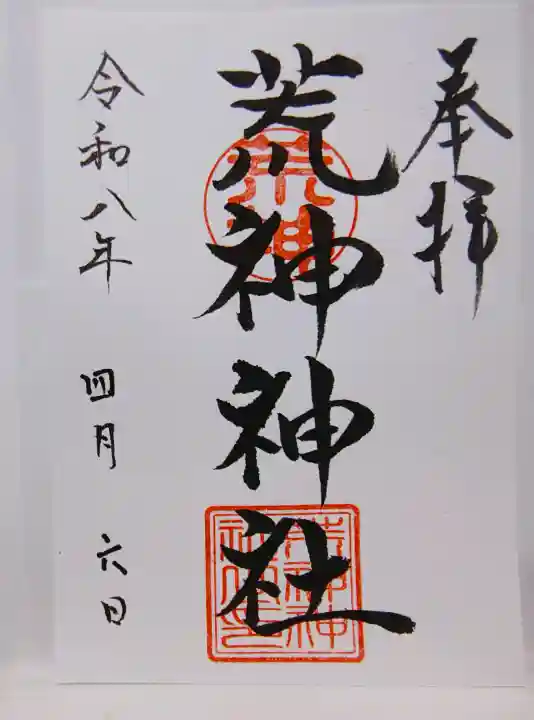 奉拝
荒神神社
荒神
荒神神社之印
令和八年 四月 六日